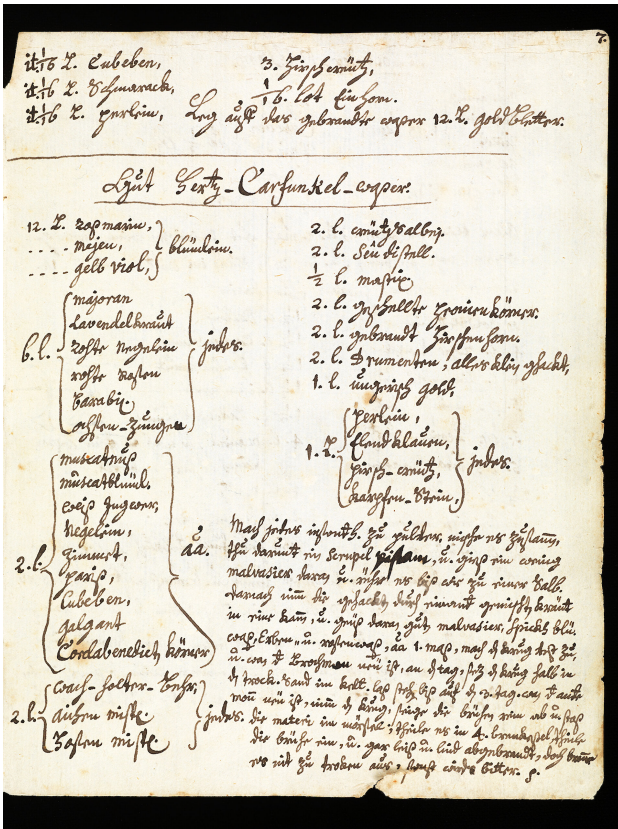 7.
it. 1/16 l. Cubeben,
it. 1/16 l. Schmarack,
it. 1/16 l. perlein,
3. Hirschcreütz,
1/16. lot Einhorn.
Leg auff das gebrandte waßer 12. l. gold bletter.
Gut Hertz-Carfunkel-waßer.
12. l. roßmarin,
.... mejen,
.... gelb viol,
blümlein.
6. l.
majoran
Lavendelkraut
rohte Negelein
rohte Rosen
Barabix
ochsen-Zungen
jedes.
2. l.
muscatnuß
muscatblüml.
weiß Ingwer,
Negelein,
Zimmet,
pariß,
Cubeben,
galgant
Cordabenedict körner
aa.
2. l.
wach-holter-Behr,
aichen mistl
Hasten mistl
jedes.
2. l. creützsalbey.
2. l. distell.
1/2 l. mastix
2. l. geschellte peonienkörner.
2. l. gebrandt Hirschenhorn.
2. l. Drumenten, alles klein ghackt,
1. l. ungerisch gold,
1. l.
perlein,
Elendklauen,
hirsch-creütz,
karpfen-Stein,
jedes.
Mach jedes zu pulver, mische es zusam,
thu darunt ein u. gieß ein wenig
malvasier daran u. rühr es biß wie zu einer Salb.
darnach nim die gehackt durch einand gemischt kreüt
in eine kant, u. gieß daran gut malvasier, blü.
waß, Erben- u. rosenwaß, aa 1. maß, mach d. krug vest zu,
u. wan neü ist, an d. tag, setz d. krug halb in
d. trock. Sand im kell. laß steh biß auf d. 3. tag. wan
mon neü ist, nimm d. krug, seige die brühe rein ab u. stoß
die materi im mörsel; theile es in 4. theile
die brühe ein, u. gar leiß u. lind abgebrandt, doch brenne
es nit zu troken aus, sonst wirds bitter.